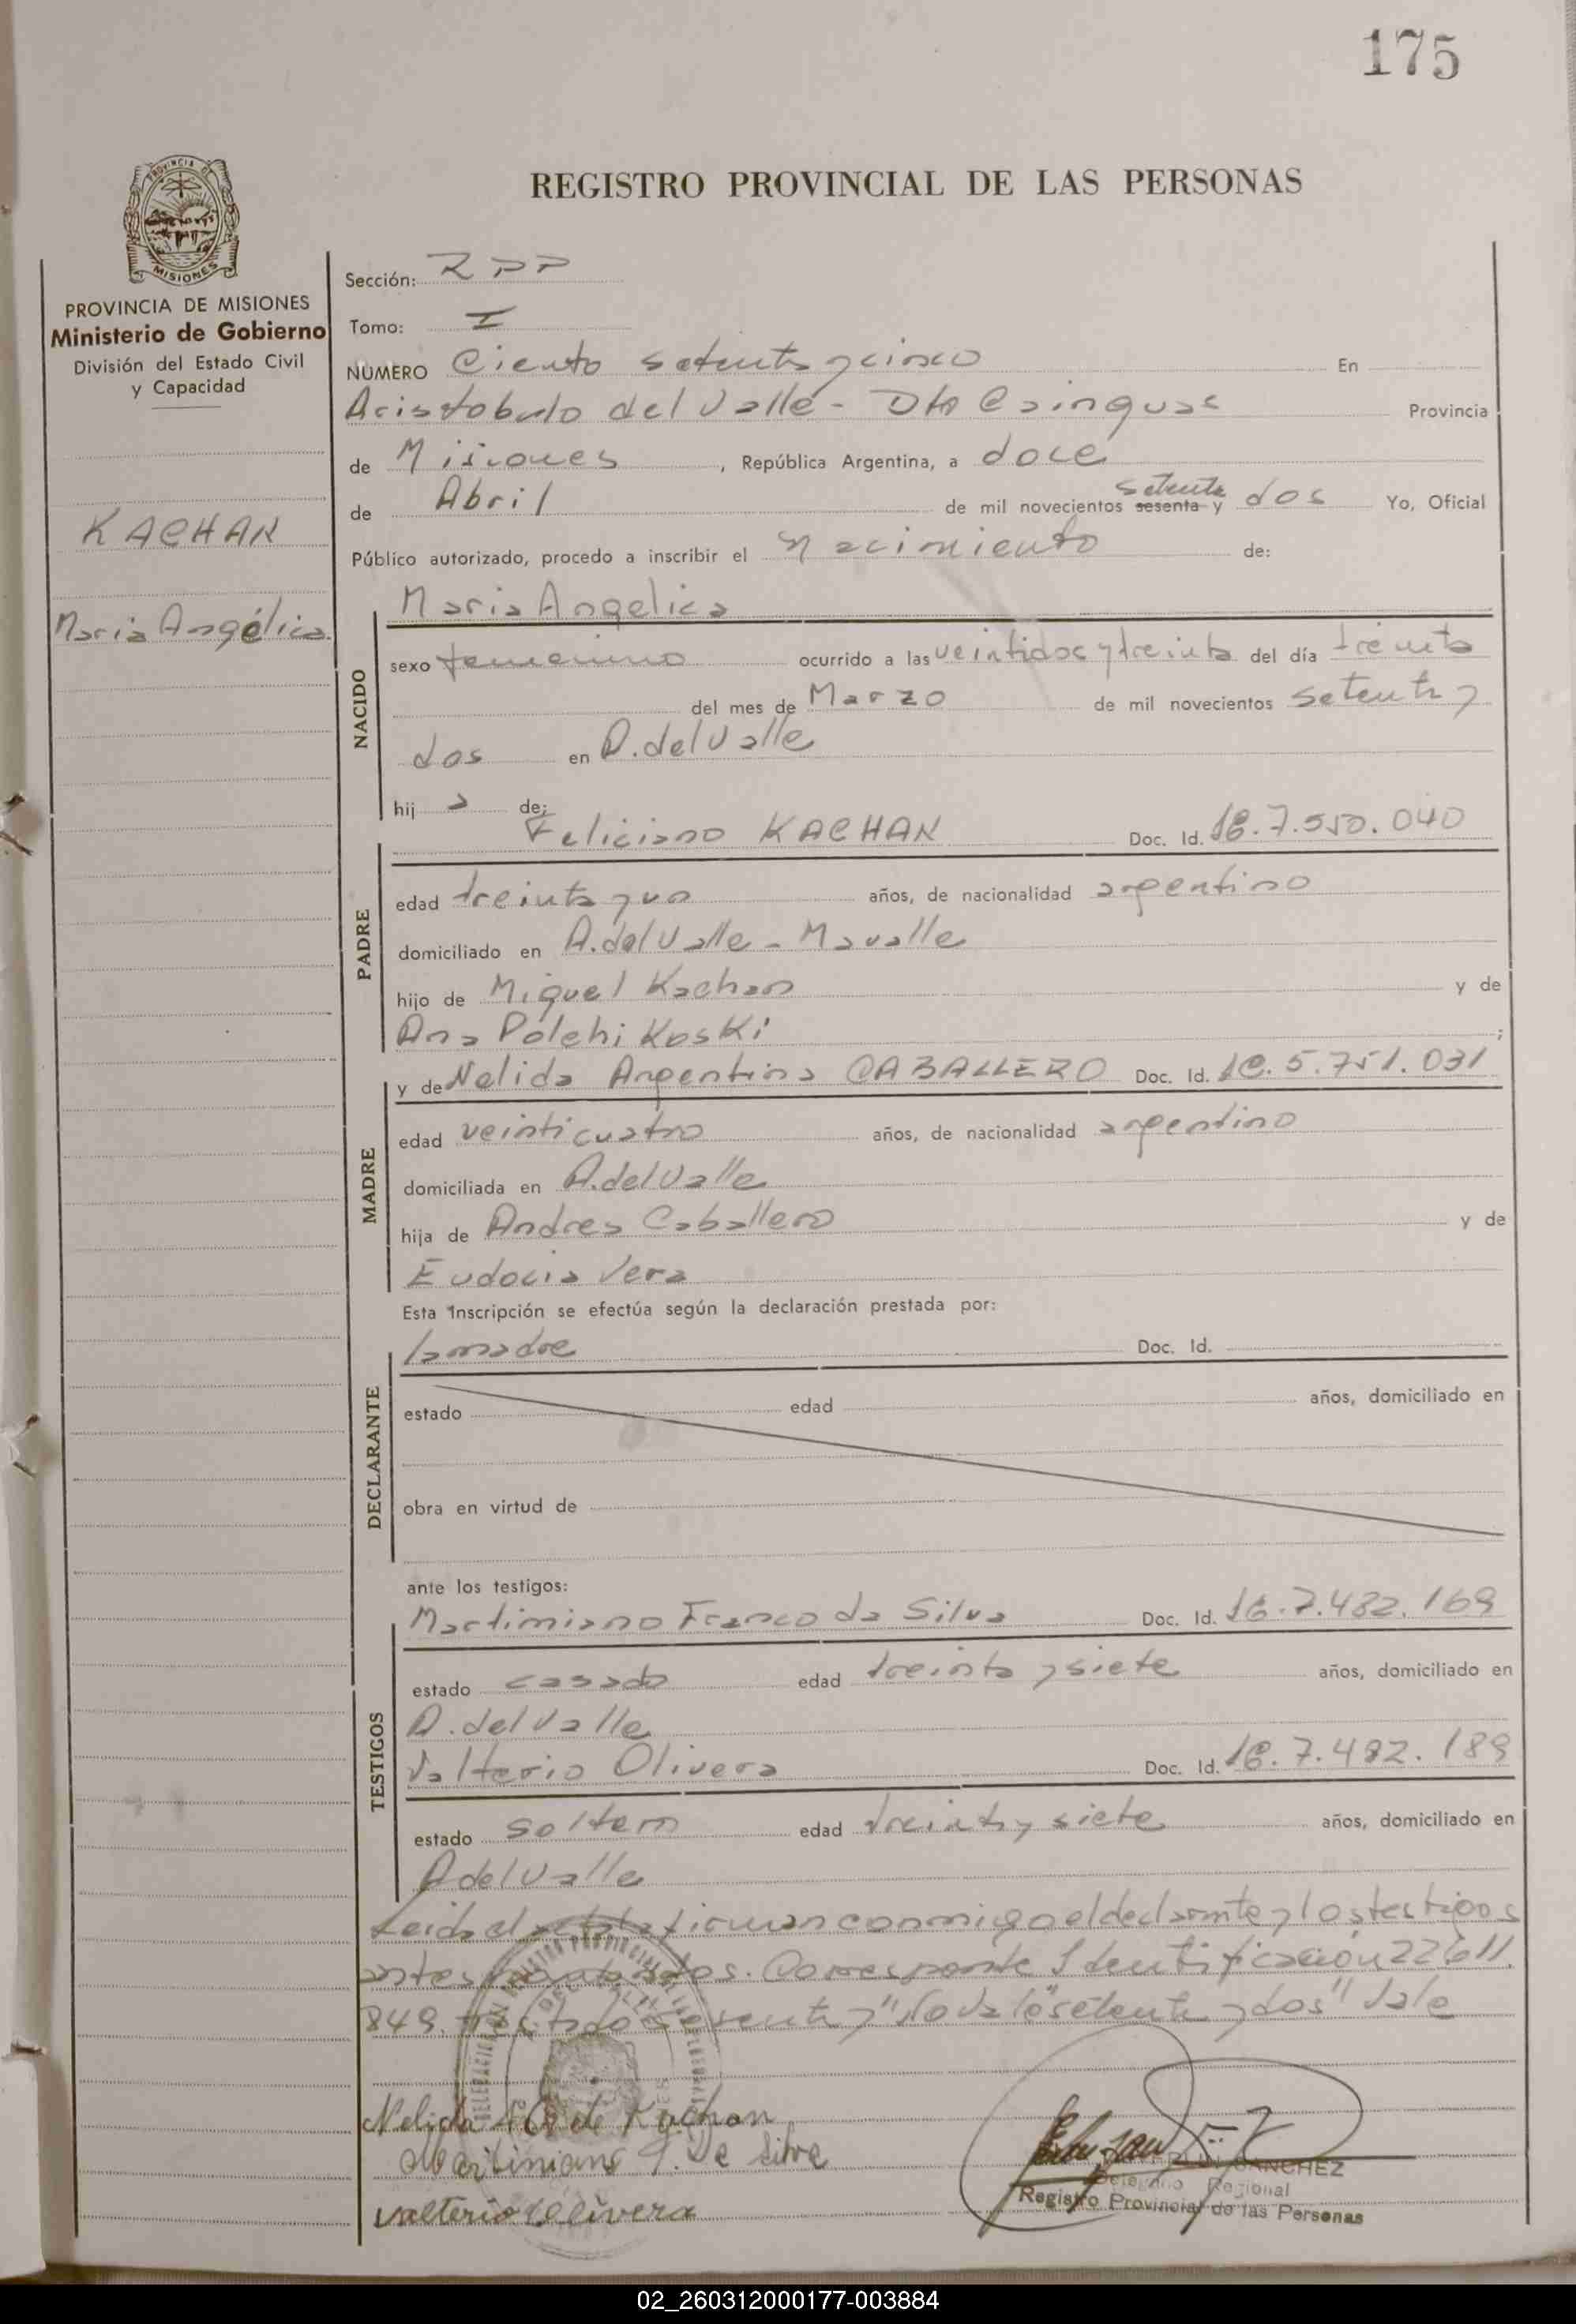 175
REGISTRO PROVINCIAL DE LAS PERSONAS
PROVINCIA DE MISIONES
Ministerio de Gobierno
División del Estado Civil
y Capacidad
KACHAN
Maria Angélica.
Sección: RPP
Tomo: I
NÚMERO Ciento setenta y cinco En
Aristobulo del Valle - Dto Cainguas Provincia
de Misiones, República Argentina, a doce
de Abril de mil novecientos sesenta y setenta dos Yo, Oficial
Público autorizado, procedo a inscribir el Nacimiento de:
Maria Angelica
NACIDO
sexo femenino ocurrido a las veintidos y treinta del día treinta
del mes de Marzo de mil novecientos setenta y
dos en A. del Valle
hij a de:
Feliciano KACHAN Doc. Id. 7.550.040
PADRE
edad treinta y un años, de nacionalidad argentino
domiciliado en A. del Valle - Mavalle
hijo de Miguel Kachan y de
Ana Polchi Koski ;
y de Nelida Argentina CABALLERO Doc. Id. 5.751.031
MADRE
edad veinticuatro años, de nacionalidad argentino
domiciliada en A. del Valle
hija de Andres Caballero y de
Eudocia Vera
Esta Inscripción se efectúa según la declaración prestada por:
la madre Doc. Id.
DECLARANTE
estado edad años, domiciliado en
obra en virtud de
ante los testigos:
Martimiano Franco da Silva Doc. Id. 7.482.169
TESTIGOS
estado casado edad treinta y siete años, domiciliado en
A. del Valle
Valterio Olivera Doc. Id. 7.492.189
estado soltero edad treinta y siete años, domiciliado en
A del Valle
Leida el acta la firman conmigo el declarante y los testigos
antes nombrados. Corresponde Identificación 22611.
849. Testado "sesenta y" No vale "setenta y dos" Vale
Nelida de Kachan
Martiniano F. De Silva
Valterio Olivera
SANCHEZ
Delegado Regional
Registro Provincial de las Personas
02_260312000177-003884